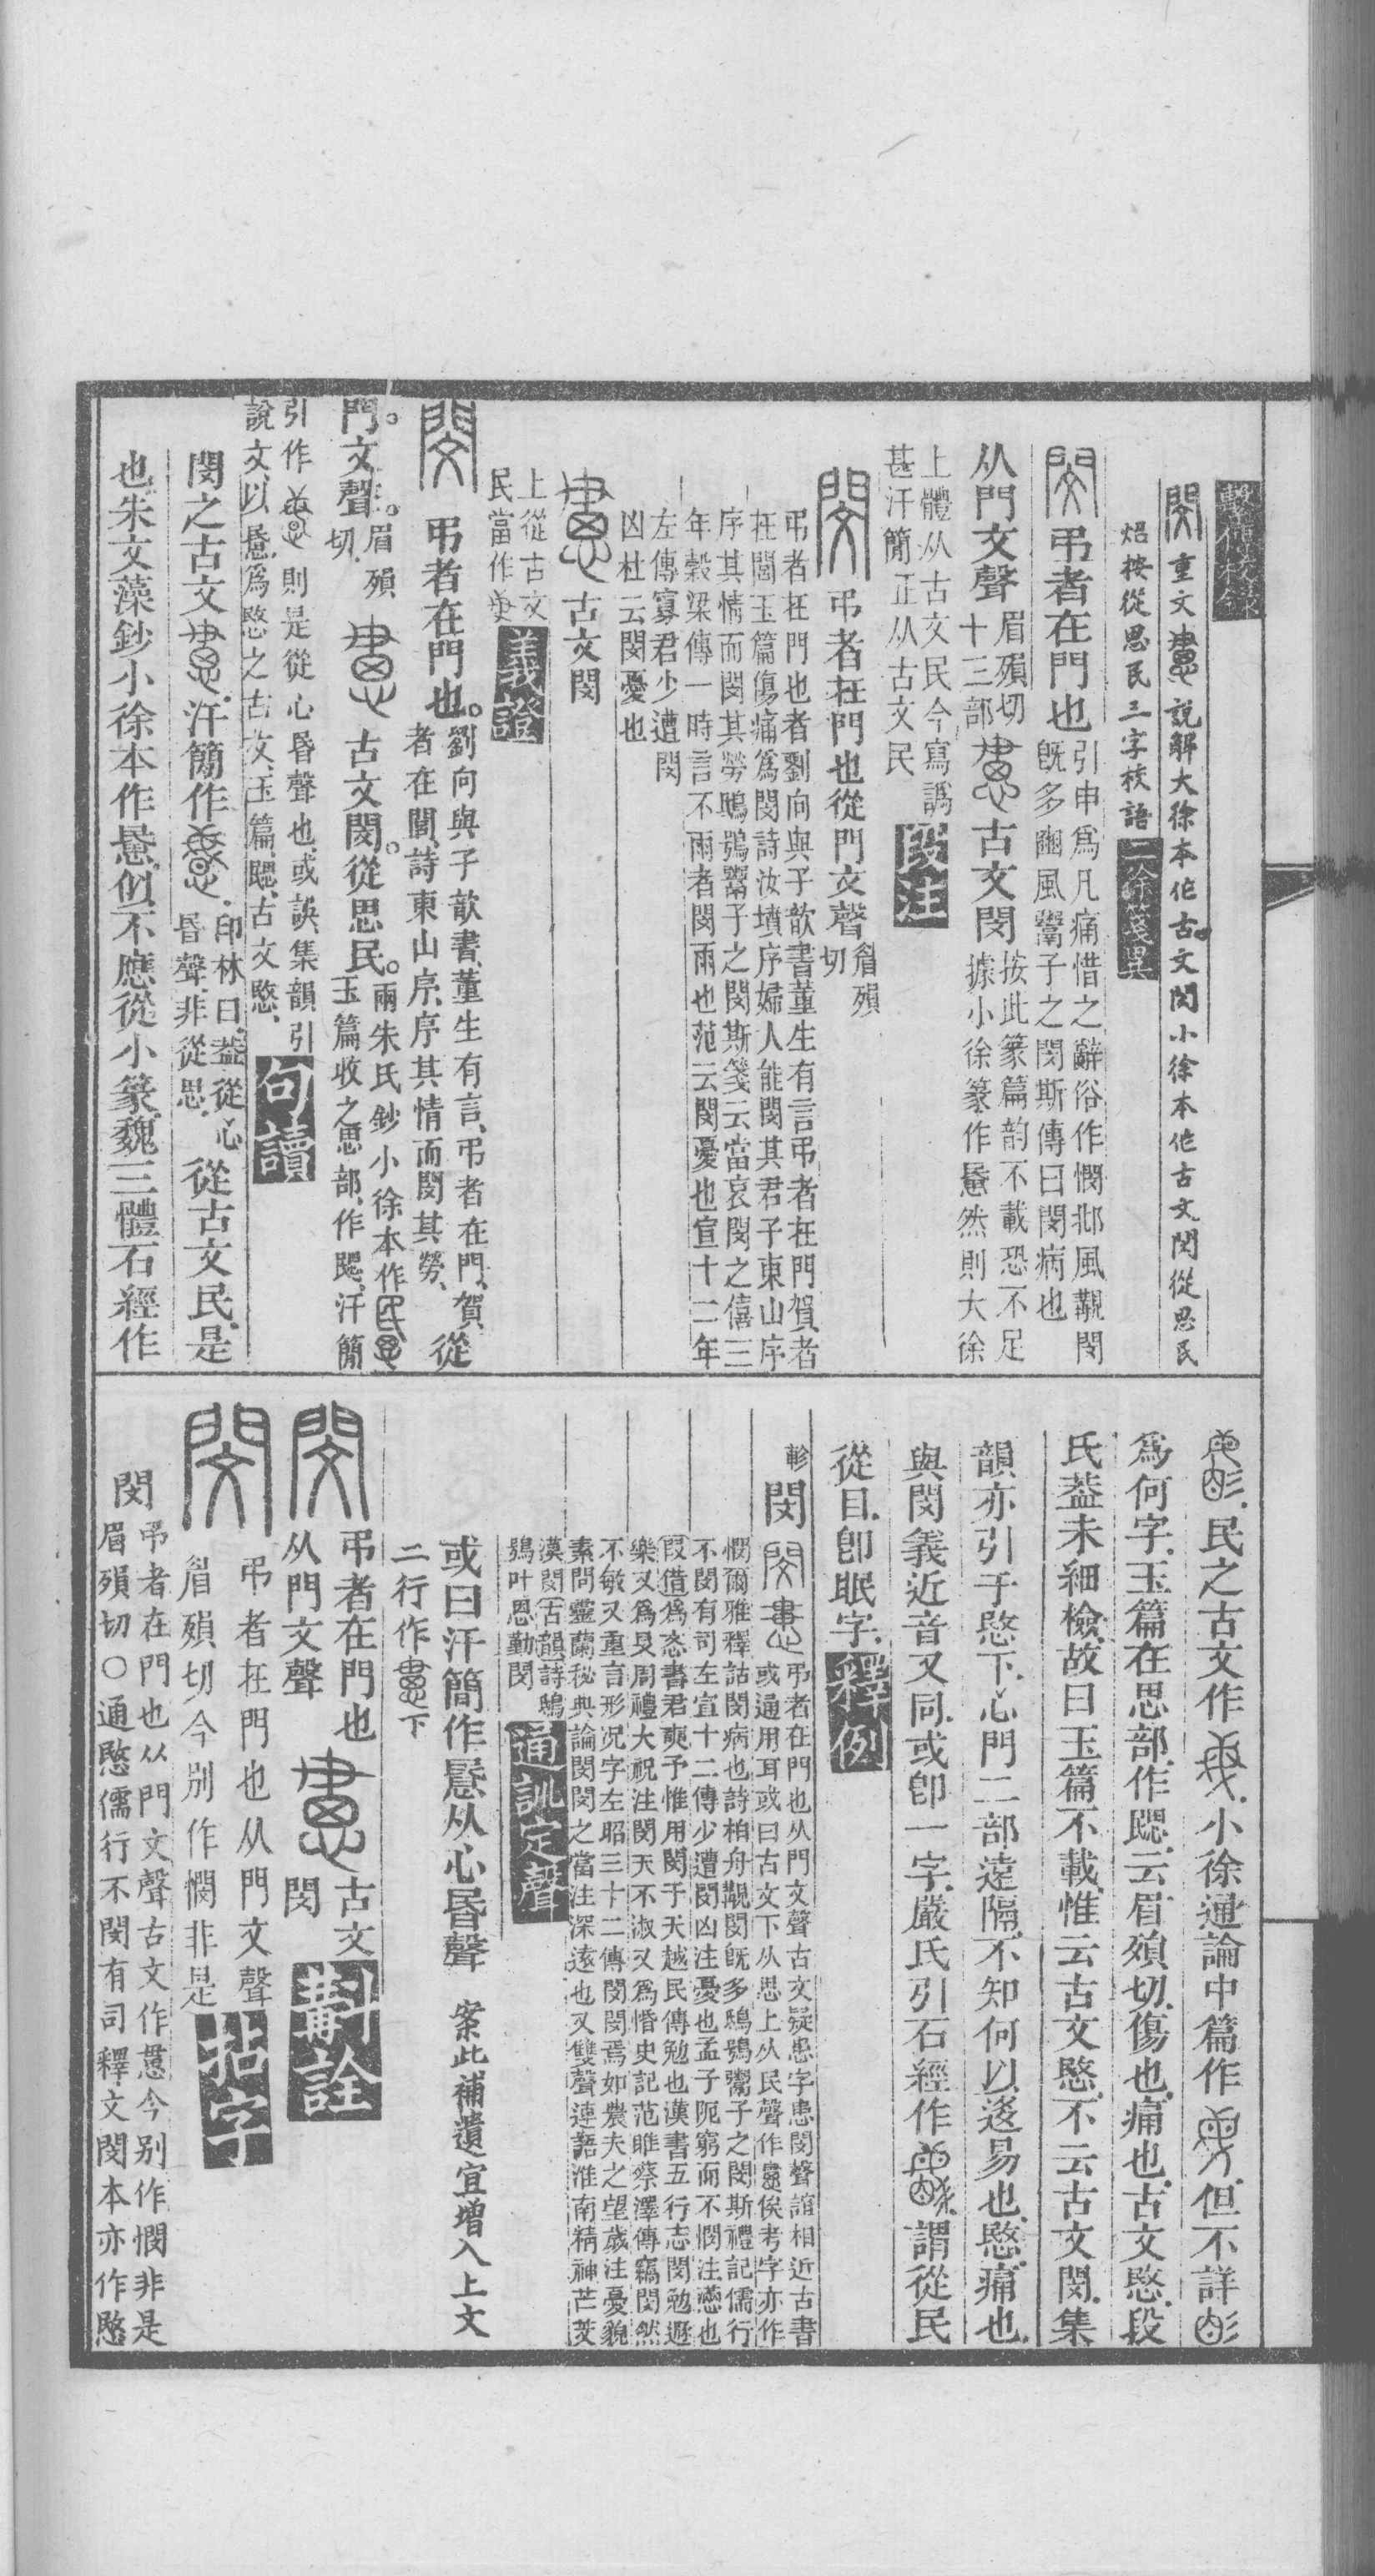 繫傳校錄
閔重文𢡱說解大徐本作古文閔小徐本作古文閔從思民
炤按從思民三字校語
二徐箋異
閔弔者在門也
引申爲凡痛惜之辭俗作憫邶風覯閔
旣多豳風鬻子之閔斯傳曰閔病也
从門文聲
眉殞切
十三部
古文閔
按此篆篇韵不載恐不足
據小徐篆作然則大徐
上體从古文民今寫譌
甚汗簡正从古文民
段注
閔弔者在門也從門文聲
眉殞
切
弔者在門也者劉向與子歆書董生有言弔者在門賀者
在閭玉篇傷痛爲閔詩汝墳序婦人能閔其君子東山序
序其情而閔其勞鴟鴞鬻子之閔斯箋云當哀閔之僖三
年穀梁傳一時言不雨者閔雨也范云閔憂也宣十二年
左傳寡君少遭閔
凶杜云閔憂也
古文閔
上從古文
民當作
義證
閔弔者在門也。
劉向與子歆書、董生有言、弔者在門、賀
者在閭、詩東山序、序其情而閔其勞、
從
門。文聲。
眉殞
切
古文閔。從思民。
兩朱氏鈔小徐本作
玉篇收之思部、作、汗簡
引作則是從心昏聲也、或誤、集韻引
說文、以爲愍之古文、玉篇、古文愍、
句讀
閔之古文、汗簡作、
印林曰、蓋從心
昏聲、非從思、
從古文民、是
也、朱文藻鈔小徐本作、似不應從小篆、魏三體石經作
、民之古文作、小徐通論中篇作、但不詳
爲何字、玉篇在思部、作、云眉殞切、傷也、痛也、古文愍、段
氏蓋未細檢、故曰玉篇不載、惟云古文愍、不云古文閔、集
韻亦引于愍下、心門二部遠隔、不知何以迻易也、愍、痛也、
與閔義近音又同、或卽一字、嚴氏引石經作、謂從民
從目、卽眠字、
釋例
軫
閔
弔者在門也从門文聲古文疑患字患閔聲誼相近古書
或通用耳或曰古文下从思上从民聲作俟考字亦作
憫爾雅釋詁閔病也詩柏舟覯閔旣多鴟鴞鬻子之閔斯禮記儒行
不閔有司左宣十二傳少遭閔凶注憂也孟子阨窮而不憫注懣也
假借爲忞書君奭予惟用閔于天越民傳勉也漢書五行志閔勉遯
樂又爲旻周禮大祝注閔天不淑又爲惛史記范睢蔡澤傳竊閔然
不敏又重言形况字左昭三十二傳閔閔焉如農夫之望歲注憂貌
素問靈蘭秘典論閔閔之當注深遠也又雙聲連語淮南精神芒芠
漠閔古韻詩鴟
鴞叶恩勤閔
通訓定聲
或曰汗簡作从心昏聲　案此補遺宜增入上文
二行作下
閔弔者在門也
从門文聲
古文
閔
斠詮
閔
弔者在門也从門文聲
眉殞切今別作憫非是
拈字
閔
弔者在門也从門文聲古文作今别作憫非是
眉殞切〇通愍儒行不閔有司釋文閔本亦作愍